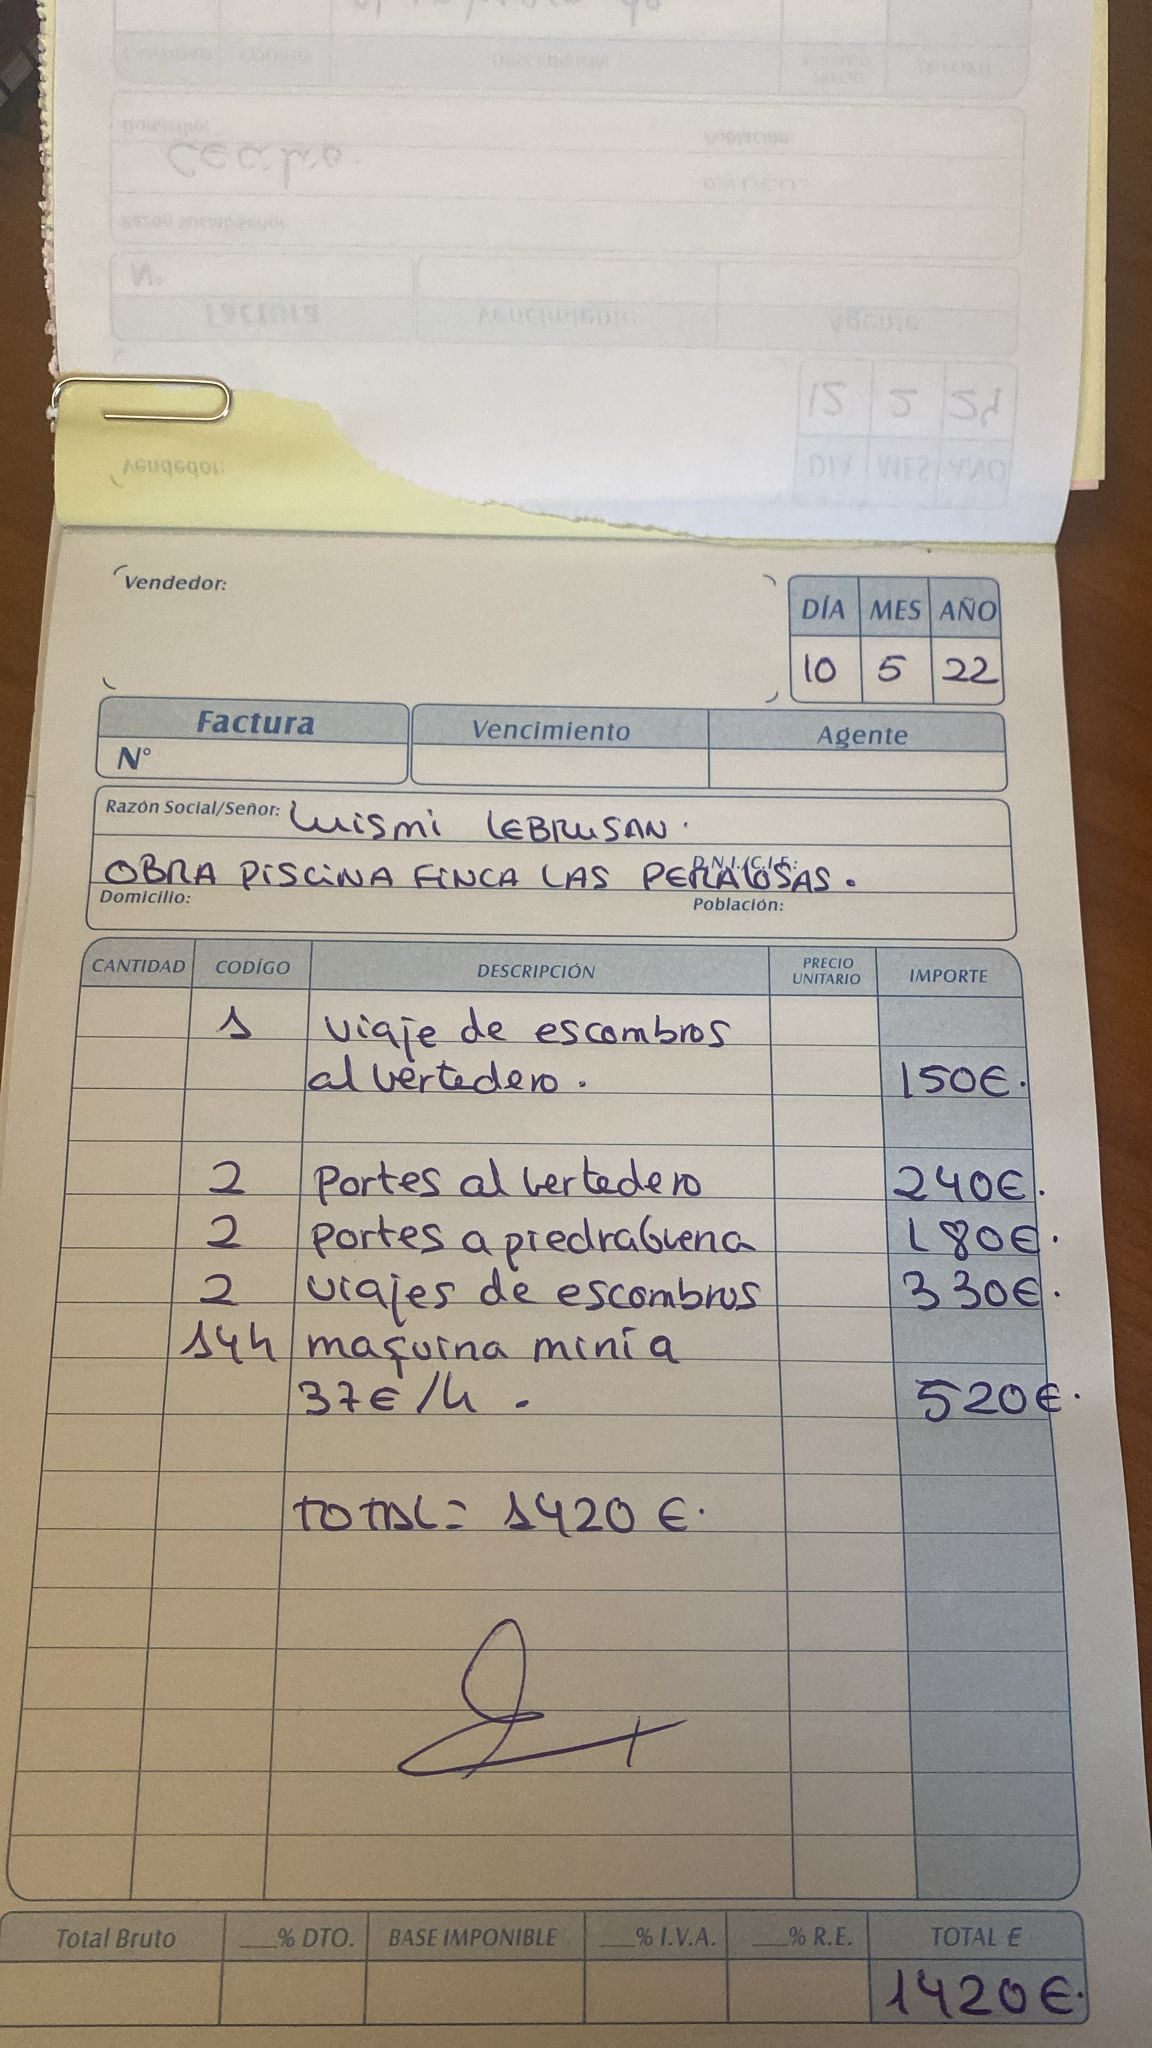 Vendedor:
DÍA MES AÑO
10 5 22
Factura
Vencimiento
Agente
N°
Razón Social/Señor: Luismi LEBRUSAN.
D.N.I./C.I.F.:
OBRA PISCINA FINCA LAS PERALOSAS.
Domicilio:
Población:
CANTIDAD CODÍGO DESCRIPCIÓN PRECIO UNITARIO IMPORTE
1 viaje de escombros
al vertedero. 150€.
2 Portes al vertedero 240€.
2 Portes a piedrabuena 180€.
2 viajes de escombros 330€.
14h maquina mini a
37€/h. 520€.
TOTAL = 1420 €.
Total Bruto __% DTO. BASE IMPONIBLE __% I.V.A. __% R.E. TOTAL €
1420€.